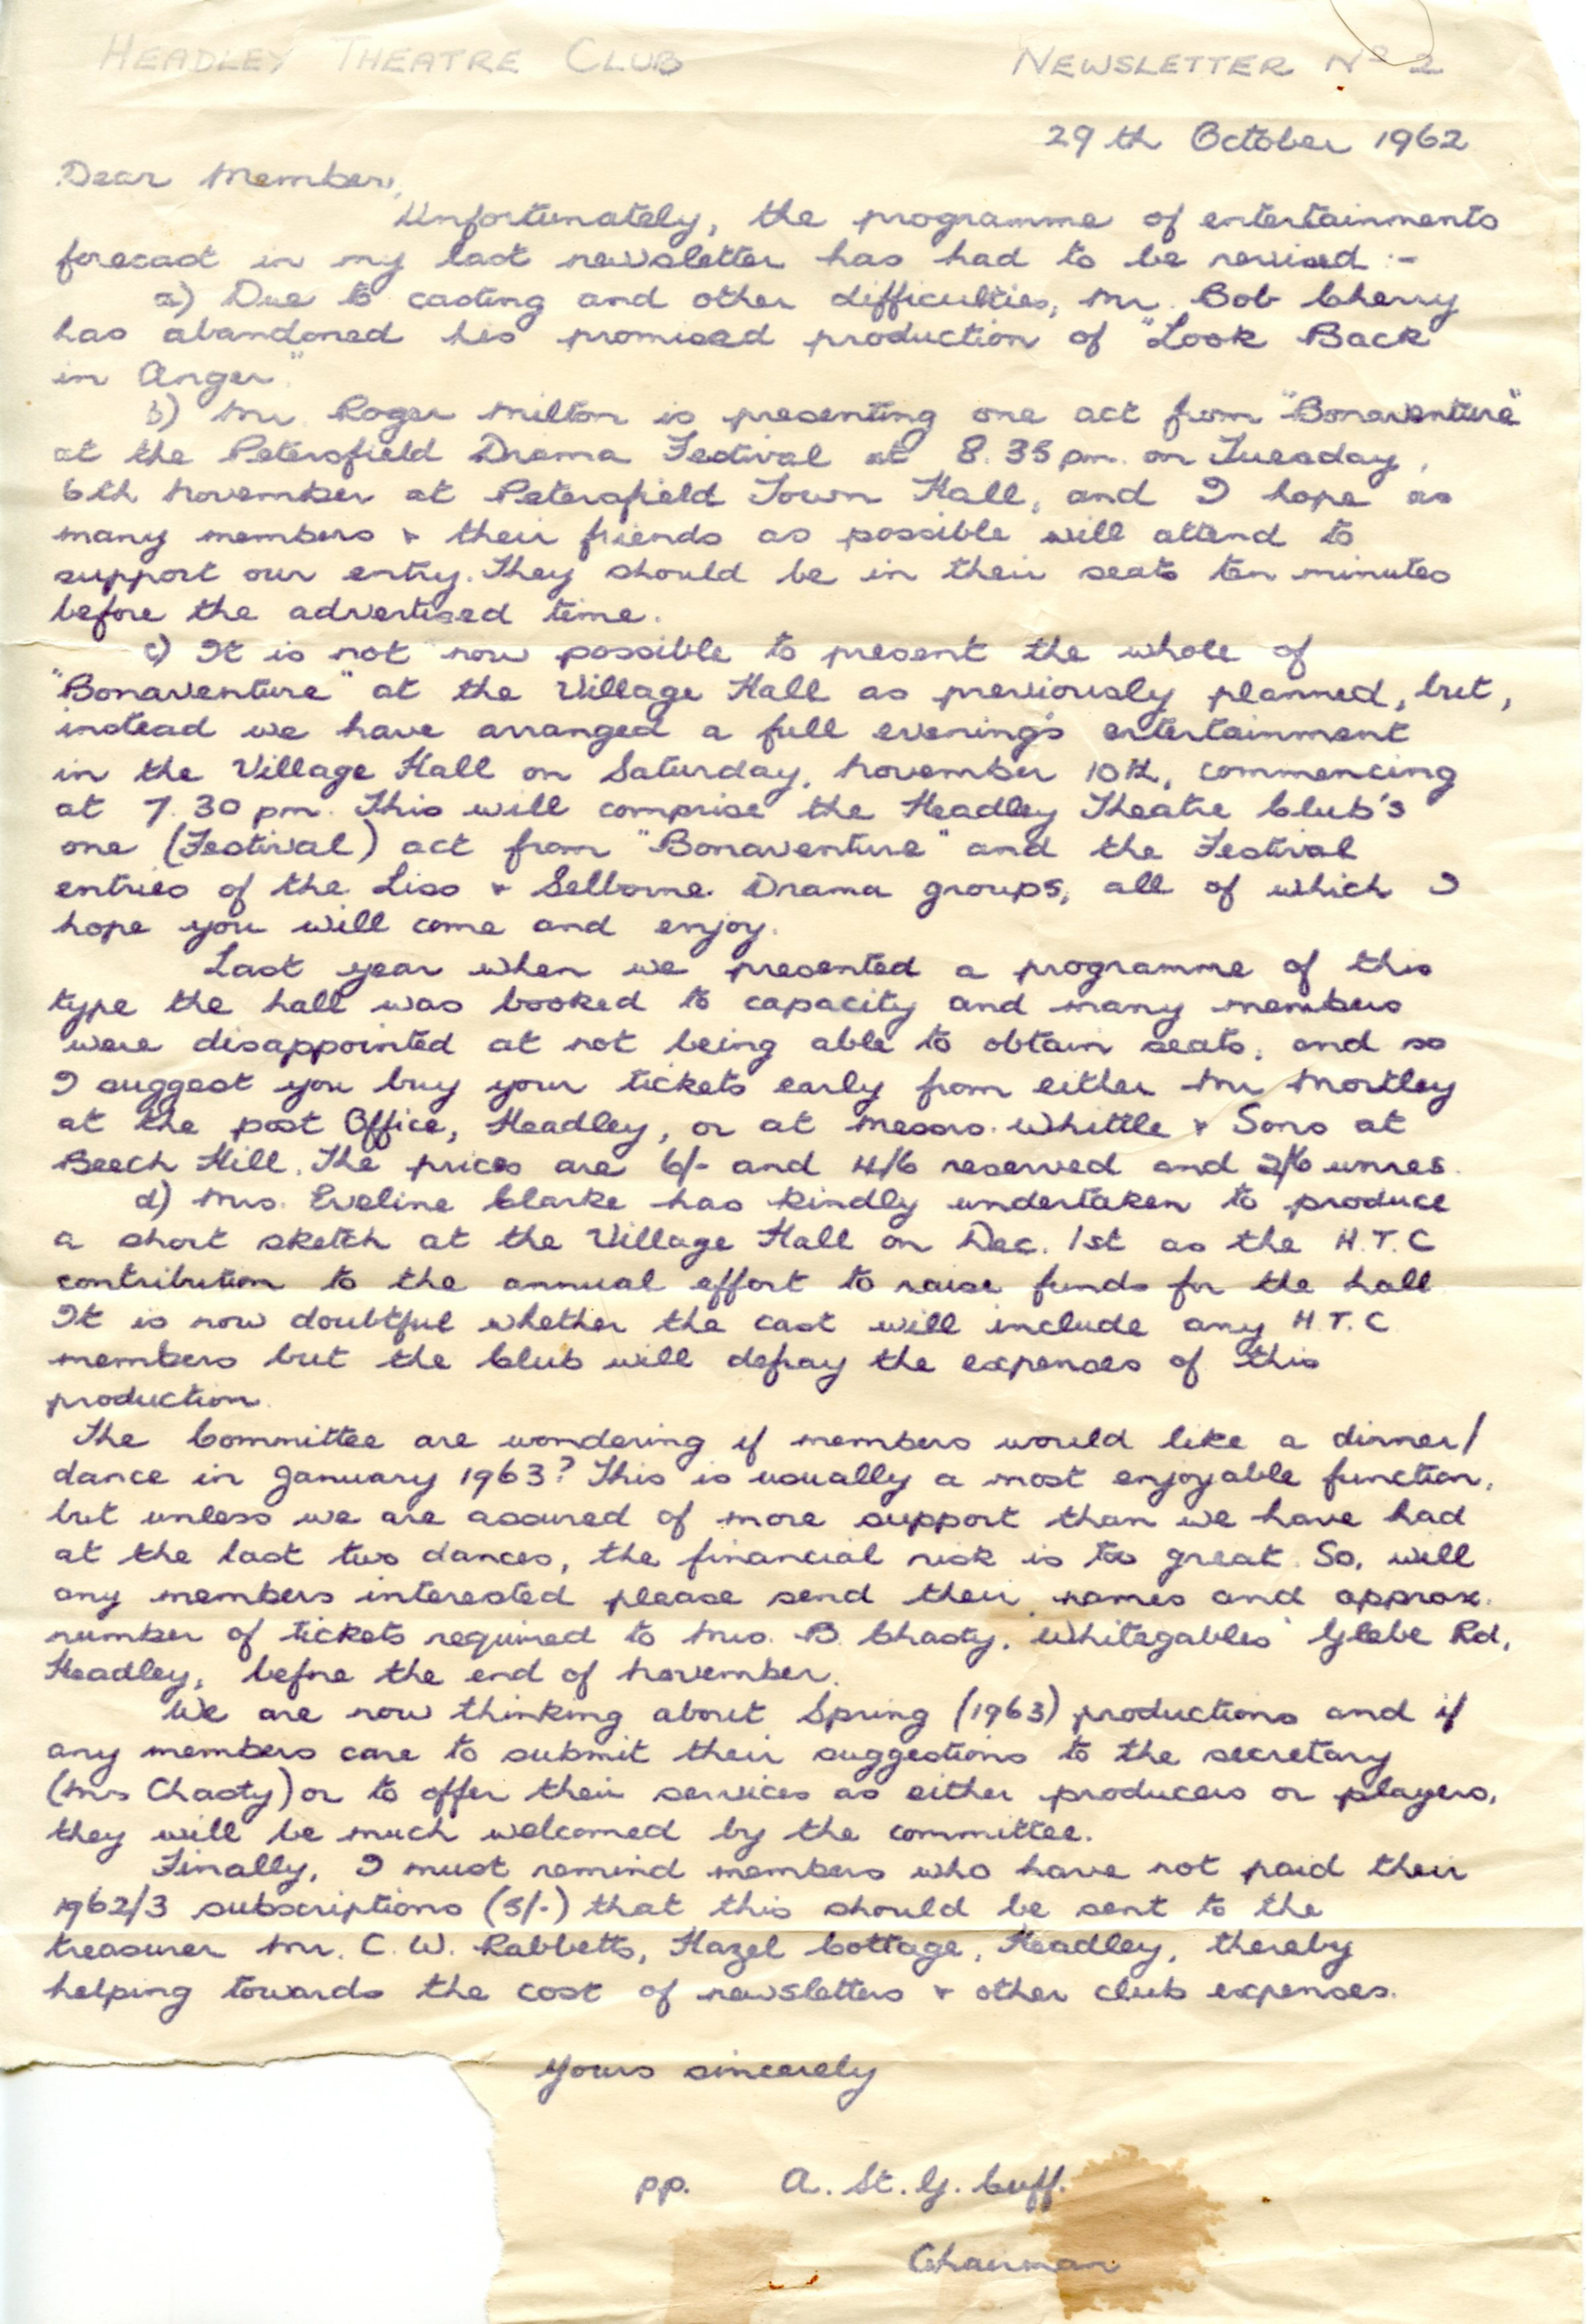 HEADLEY THEATRE CLUB NEWSLETTER No 2
29th October 1962
Dear Member,
Unfortunately, the programme of entertainments
forecast in my last newsletter has had to be revised :-
a) Due to casting and other difficulties, Mr. Bob Cherry
has abandoned his promised production of "Look Back
in Anger".
b) Mr. Roger Milton is presenting one act from "Bonaventure"
at the Petersfield Drama Festival at 8.35 pm. on Tuesday,
6th November at Petersfield Town Hall, and I hope as
many members & their friends as possible will attend to
support our entry. They should be in their seats ten minutes
before the advertised time.
c) It is not now possible to present the whole of
"Bonaventure" at the Village Hall as previously planned, but,
instead we have arranged a full evening's entertainment
in the Village Hall on Saturday, November 10th, commencing
at 7.30 pm. This will comprise the Headley Theatre Club's
one (Festival) act from "Bonaventure" and the Festival
entries of the Liss & Selborne Drama groups, all of which I
hope you will come and enjoy.
Last year when we presented a programme of this
type the hall was booked to capacity and many members
were disappointed at not being able to obtain seats, and so
I suggest you buy your tickets early from either Mr Mortley
at the post Office, Headley, or at Messrs. Whittle & Sons at
Beech Hill. The prices are 6/- and 4/6 reserved and 2/6 unres.
d) Mrs. Eveline Clarke has kindly undertaken to produce
a short sketch at the Village Hall on Dec. 1st as the H.T.C
contribution to the annual effort to raise funds for the hall
It is now doubtful whether the cast will include any H.T.C.
members but the Club will defray the expenses of this
production.
The Committee are wondering if members would like a dinner/
dance in January 1963? This is usually a most enjoyable function,
but unless we are assured of more support than we have had
at the last two dances, the financial risk is too great. So, will
any members interested please send their names and approx.
number of tickets required to Mrs. B. Chasty, 'Whitegables' Glebe Rd,
Headley, before the end of November.
We are now thinking about Spring (1963) productions and if
any members care to submit their suggestions to the secretary
(Mrs Chasty) or to offer their services as either producers or players,
they will be much welcomed by the committee.
Finally, I must remind members who have not paid their
1962/3 subscriptions (5/-) that this should be sent to the
treasurer Mr. C. W. Rabbetts, Hazel Cottage, Headley, thereby
helping towards the cost of newsletters & other club expenses.
Yours sincerely
pp. A. St. G. Cuff.
Chairman